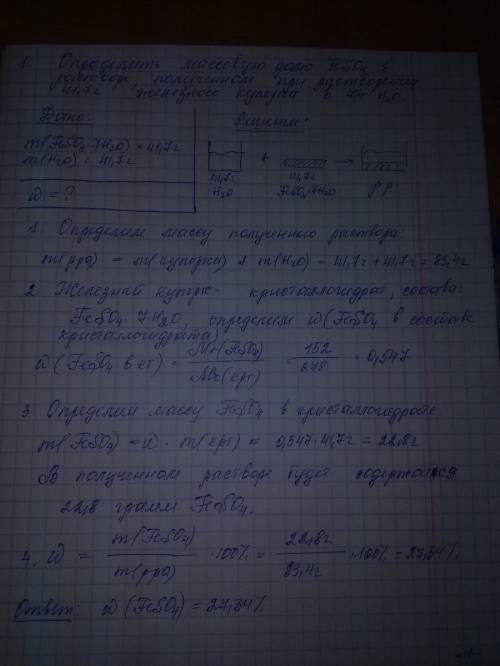 1. Определить массовую долю FeSO4 в
растворе, полученном при растворении
41,7г железного купороса в H2O
Дано:
Решить:
m(FeSO4·7H2O) = 41,7г
m(H2O) = 41,7г
ω = ?
+ →
41,7г
H2O
41,7г
FeSO4·7H2O
р-р
1. Определим массу полученного раствора:
m(рра) = m(купороса) + m(H2O) = 41,7г + 41,7г = 83,4г
2. Железный купорос - кристаллогидрат, состава:
FeSO4·7H2O, определим ω(FeSO4 в составе
кристаллогидрата)
ω(FeSO4 в кг) = Mr(FeSO4) / Mr(крг) = 152 / 278 = 0,547
3. Определим массу FeSO4 в кристаллогидрате
m(FeSO4) = ω · m(крг) = 0,547·41,7г = 22,8г
В полученном растворе будет содержаться
22,8 грамм FeSO4.
4. ω = m(FeSO4) / m(рра) ·100% = 22,8г / 83,4г ·100% = 27,34%.
Ответ: ω(FeSO4) = 27,34%